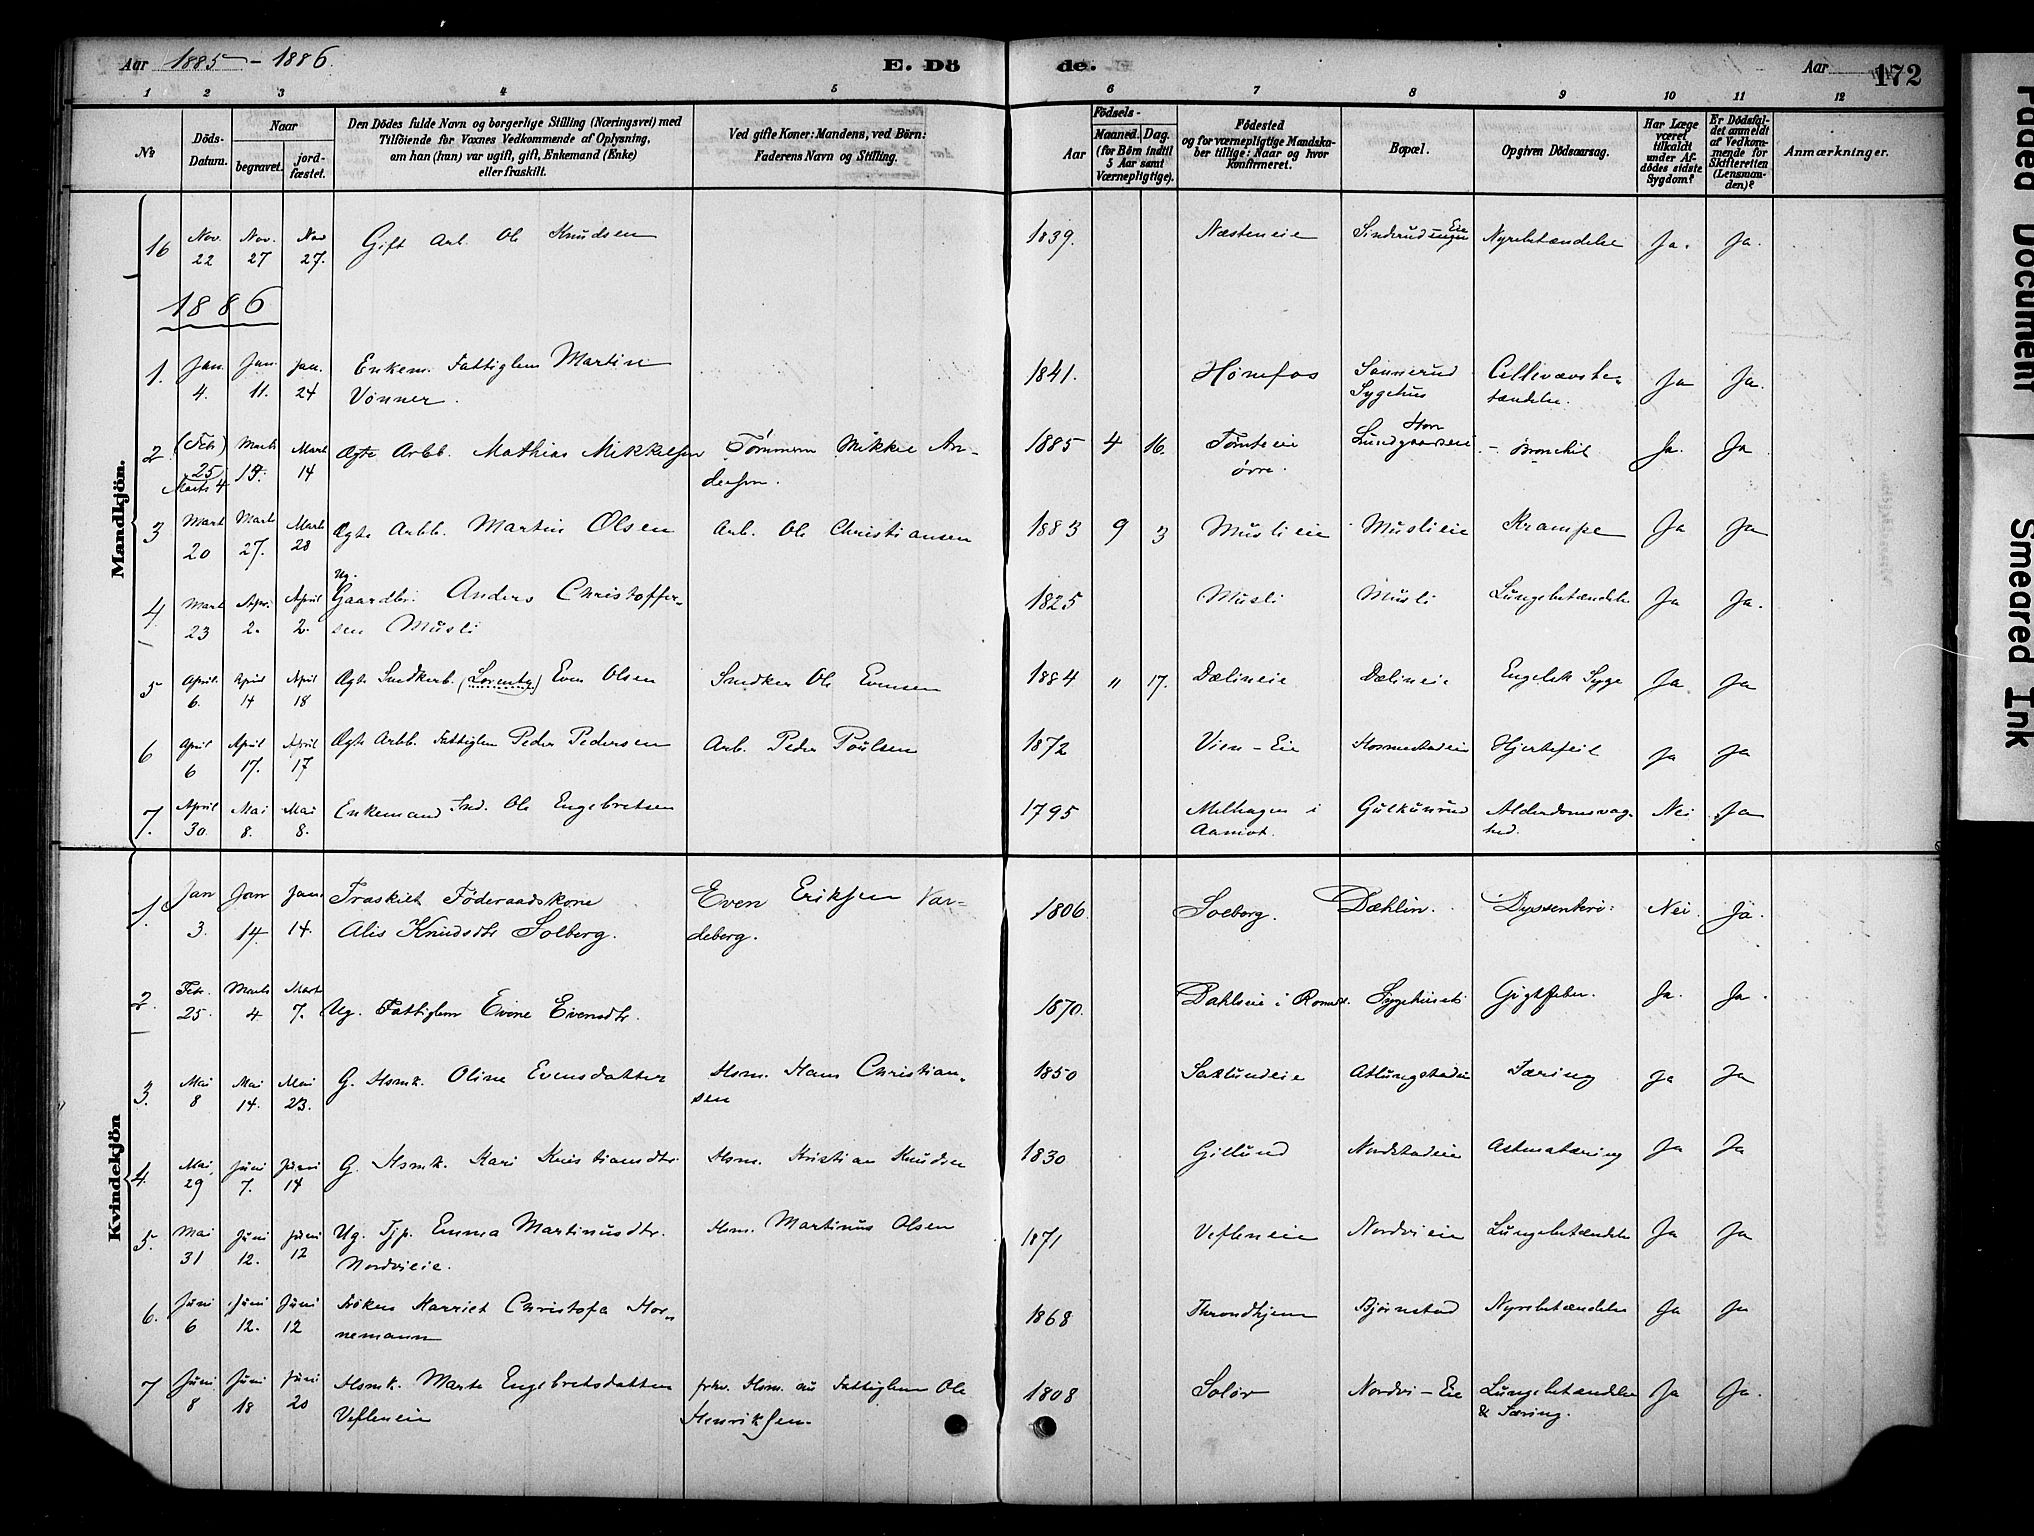 Aar 1885 - 1886
E. Döde.
Aar
172
1 2 3 4 5 6 7 8 9 10 11 12
№
Döds-Datum.
Naar
begravet.
jordfæstet.
Den Dödes fulde Navn og borgerlige Stilling (Næringsvei) med
Tilföiende for Voxnes Vedkommende af Oplysning,
om han (hun) var ugift, gift, Enkemand (Enke)
eller fraskilt.
Ved gifte Koner: Mandens, ved Börn:
Faderens Navn og Stilling.
Födsels-
Aar
Maaned. Dag.
(for Börn indtil
5 Aar samt
Værnepligtige).
Födested
og for værnepligtige Mandskaber tillige: Naar og hvor
Konfirmeret.
Bopæl.
Opgiven Dödsaarsag.
Har Læge
været
tilkaldt
under Afdödes sidste
Sygdom?
Er Dödsfaldet anmeldt
af Vedkommende for
Skifteretten
(Lensmanden)?
Anmærkninger.
Mandkjön.
16 Nov. 22 Nov. 27 Nov 27. Gift Arb. Ole Knudsen 1839. Næsteneie Nyrebetændelse Ja. Ja.
1886
1. Jan. 4. Jan. 11. Jan. 24 Enkem. Fattiglem Martin 1841. Hönefos Sannerud Ja Ja.
Vönner. Sygehus
2. (Febr 25) Marts 4 Marts 14. Marts 14 Ægte Arbb. Mathias Mikkelsen Tömmerm Mikkel An- 1885 4 16. Tomteeie Bronchit Ja. Ja
dersen. övre.
3 Mart 20 Marts 27. Marts 28 Ægte Arbb. Martin Olsen Arb. Ole Christiansen 1883 9 3 Muslieie Muslieie Krampe Ja Ja
4 Mart 23 April 2. April 2. Ug. Gaardbr. Anders Christoffer- 1825 Musli Musli Lungebetændelse Ja Ja.
sen Musli
5 April. 6. April 14 April 18 Ægte Snedkerb. (Lorentz) Even Olsen Snedker Ole Evensen 1884 " 17. Dælineie Dælineie Engelsk Syge Ja Ja
6 April 6 April 17. April 17 Ægte Arbb. Fattiglem Peder Pedersen Arb. Peder Poulsen 1872 Vien-Eie Hjertefeil Ja Ja
7. April 30. Mai 8. Mai 8. Enkemand Ind. Ole Engebretsen 1795 Melhagen i Gulkunrud Alderdomsvag- Nei Ja
Aamot. hed.
Kvindekjön
1. Jan 3. Jan 14. Jan. 14. Fraskilt Föderaadskone Even Eriksen Var- 1806. Solberg. Dæhlin. Dyssenteri. Nei Ja.
Alis Knudsdtr Solberg. deberg.
2. Febr. 25. Marts 4 Marts 7. Ug. Fattiglem Evine Evensdtr. 1870. Dahlseie i Romed. Sygehuset Gigtfeber. Ja. Ja.
3. Mai 8 Mai 14. Mai 23. G. Hsmk. Oline Evensdatter Hsm. Hans Christian- 1850 Saxlundeie Atlungstadeie Tæring Ja Ja
sen
4. Mai 29 Juni 7. Juni 14 G. Hsmk. Kari Kristiansdtr. Hsm. Kristian Knudsen 1830 Gillund Nordstadeie Astmatæring Ja Ja
5. Mai 31 Juni 12. Juni 12 Ug. Tjp. Emma Martinusdtr. Hsm. Martinus Olsen 1871 Vefleneie Nordvieie Lungebetændelse Ja Ja
Nordvieie.
6. Juni 6 Juni 12. Juni 12 Fröken Harriet Christofa Hor- 1868 Throndhjem Bjørnstad Nyrebetændelse Ja Ja
nemann
7 Juni 8 Juni 18 Juni 20 Hsmk. Marte Engebretsdatter frhv. Hsm. nu Fattiglem Ole 1808 Solör Nordvi-Eie Lungebetændelse Ja Ja.
Vefleneie Henriksen. & Tæring.
Faded Document
Smeared Ink